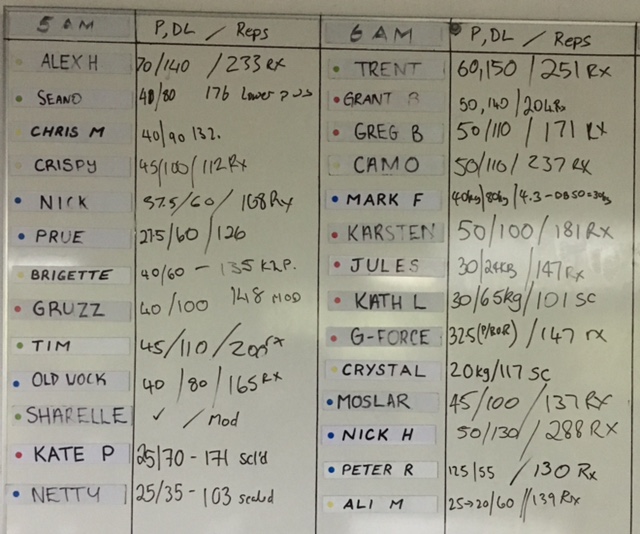 5 AM P, DL / Reps
ALEX H 70/140 /233 RX
SEANO 40/80 176 Lower
CHRIS M 40/90 132.
CRISPY 45/100/112 RX
NICK 37.5/60/ 108 RX
PRUE 27.5/60/126
BRIGETTE 40/60 - 135
GRUZZ 40/100 148 MOD
TIM 45/110/200 rx
OLD UOCK 40/80/165 RX
SHARELLE ✓ / Mod
KATE P 25/70 - 171 scl'd
NETTY 25/35 - 103 scaled
6 AM P, DL / Reps
TRENT 60,150 / 251 RX
GRANT B 50,140/204 Rx
GREG B 50/110 / 171 RX
CAMO 50/110/ 237 RX
MARK F 40kg/80kg
KARSTEN 50/100/181 RX
JULES 30/24KB/147 Rx
KATH L 30/65kg/101 SC
G-FORCE 32.5 / 147 rx
CRYSTAL 20kg/117 SC
MOSLAR 45/100/137 RX
NICK H 50/130/ 288 RX
PETER R 125/55 /130 Rx
ALI M 25→20/60 //139 Rx